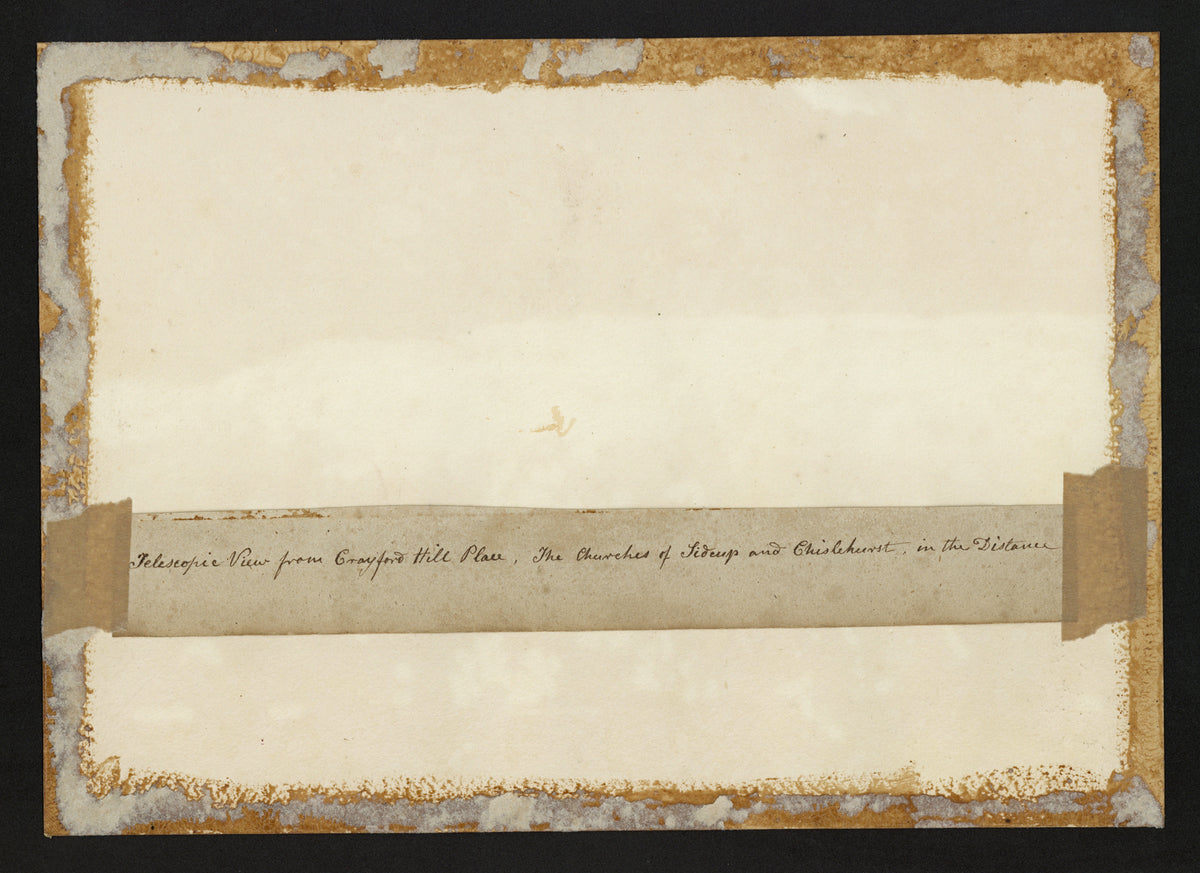 Telescopic View from Crayford Hill Place, The Churches of Sidcup and Chislehurst, in the Distance